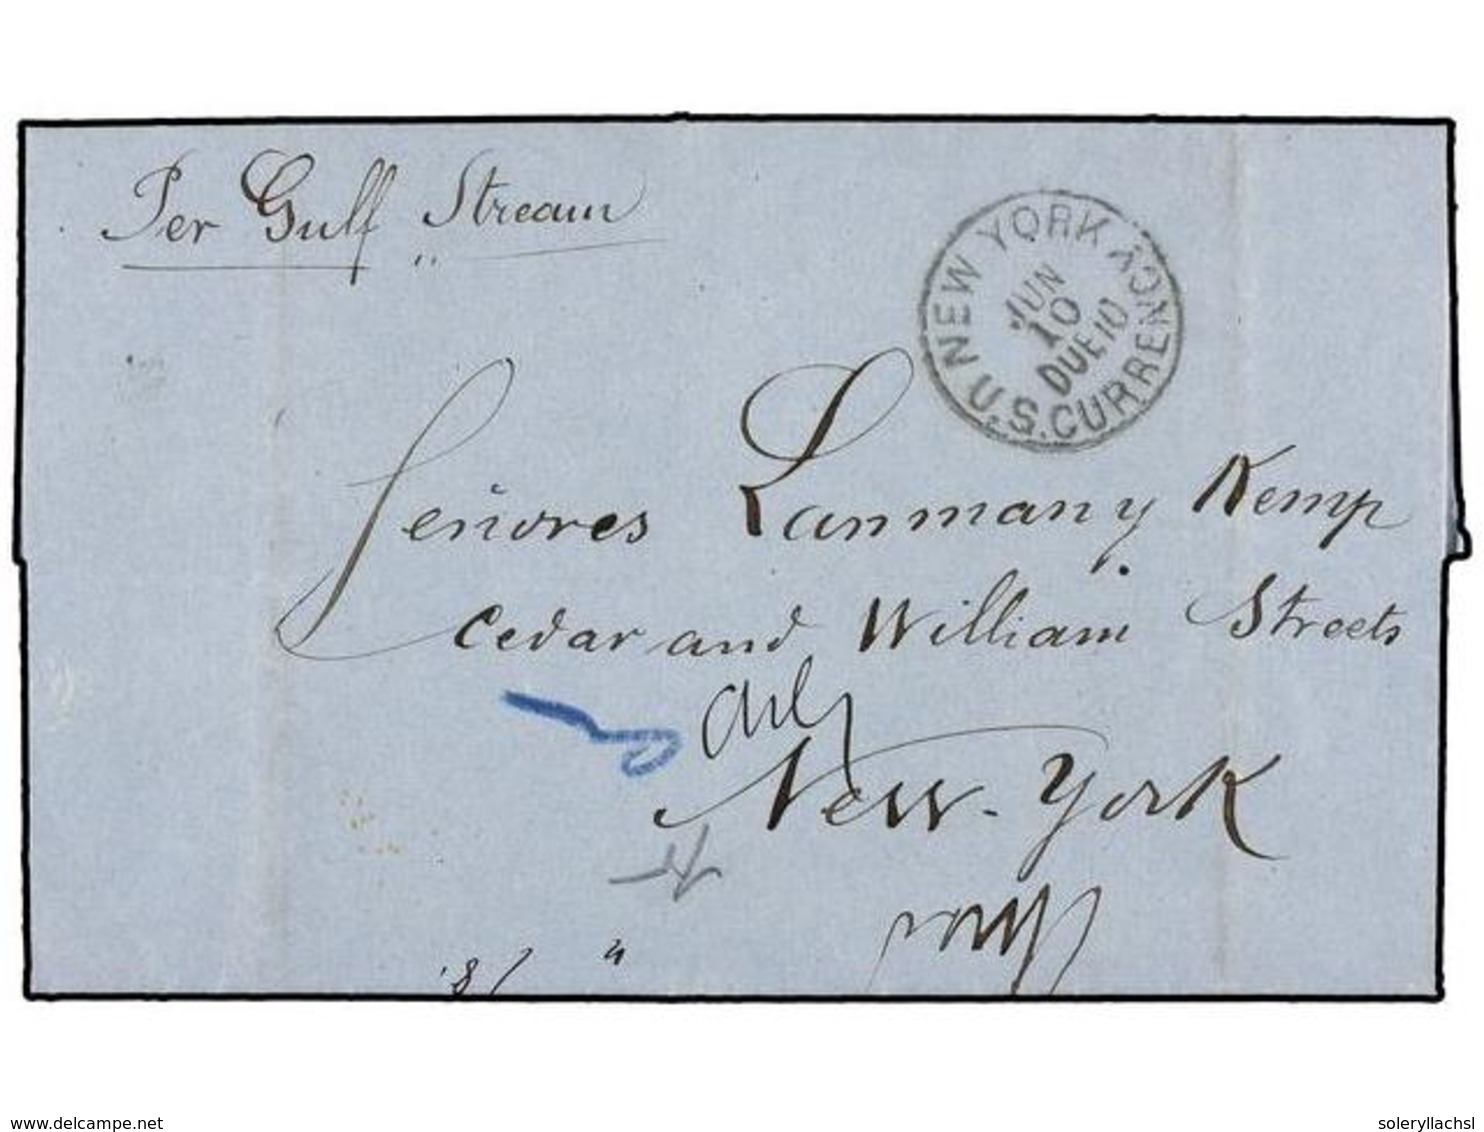 Per Gulf Stream
NEW YORK
JUN
10
DUE 10
U.S. CURRENCY
Señores Lanman y Kemp
Cedar and William Streets
New-York
www.delcampe.net
soleryllachsl